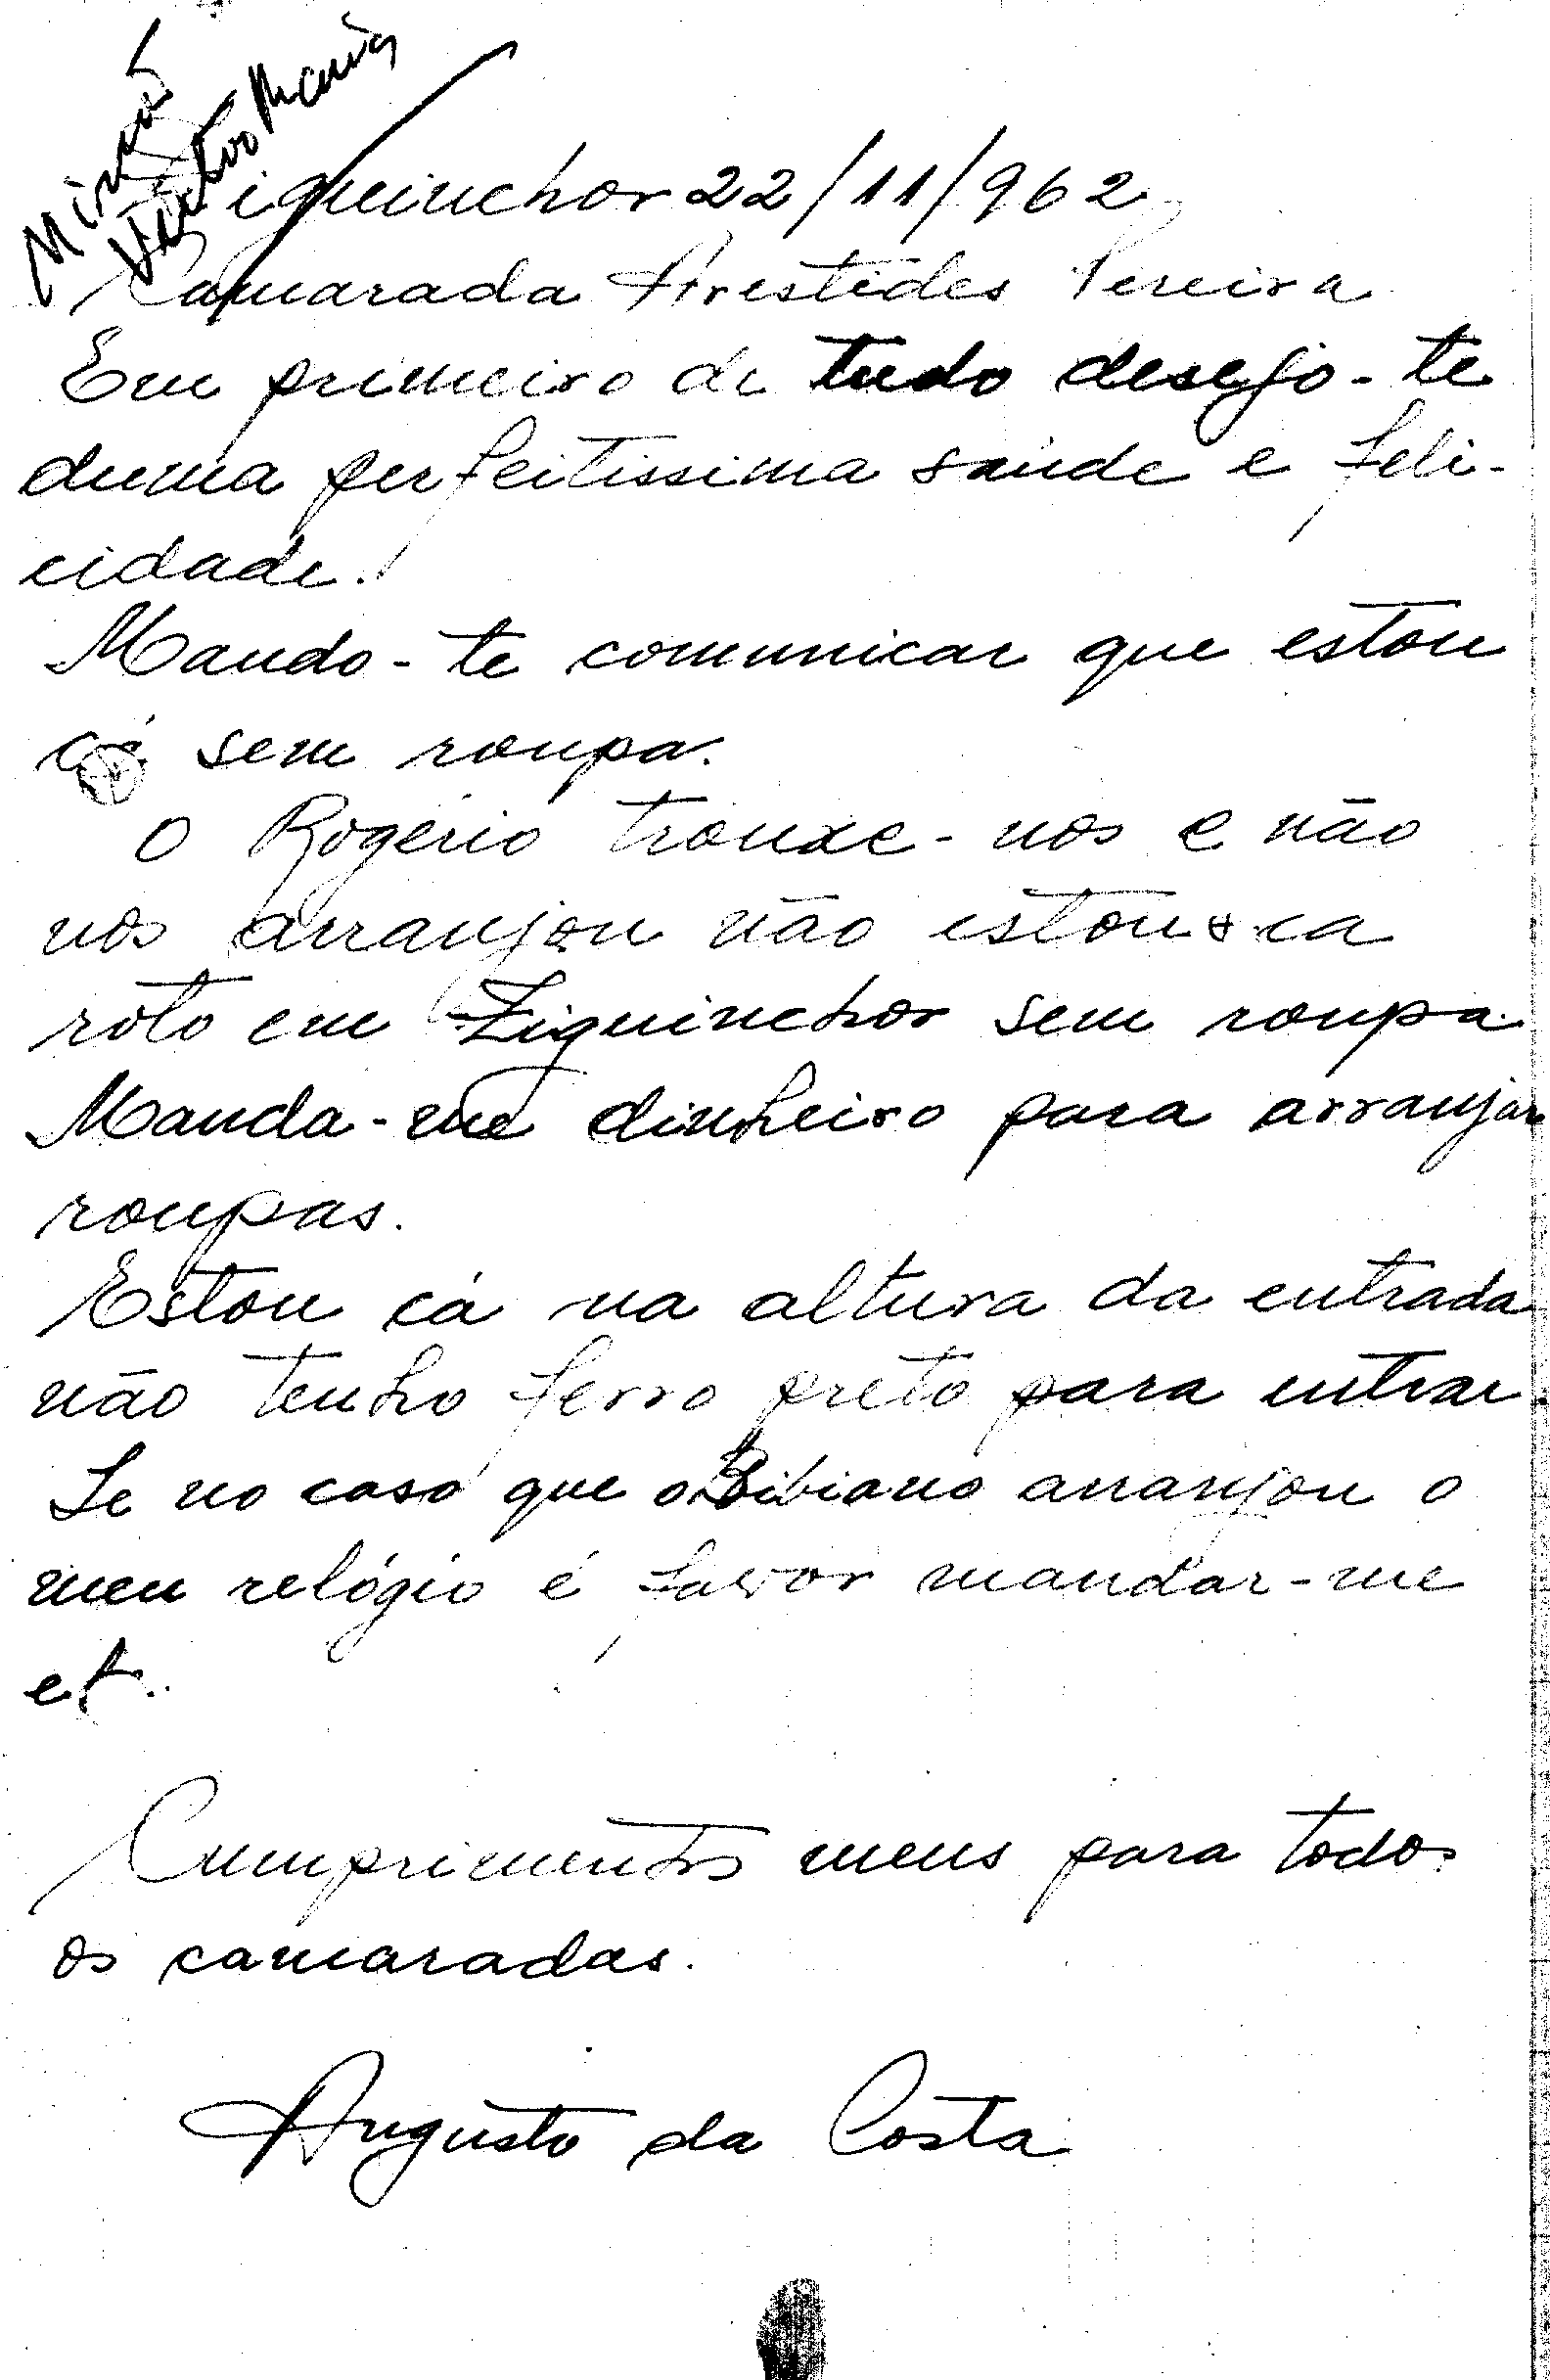 Ziguinchor 22/11/962
Camarada Arestides Pereira
Em primeiro de tudo desejo-te
duma perfeitissima saúde e feli-
cidade.
Mando-te comunicar que estou
cá sem roupa.
O Rogério trouxe-nos e não
nos arranjou não estou ca
roto em Ziguinchor sem roupa.
Manda-me dinheiro para arranjar
roupas.
Estou cá na altura da entrada
não tenho ferro preto para entrar.
Se no caso que o Bibiano arranjou o
meu relógio é favor mandar-me
et..
Cumprimentos meus para todos
os camaradas.
Augusto da Costa